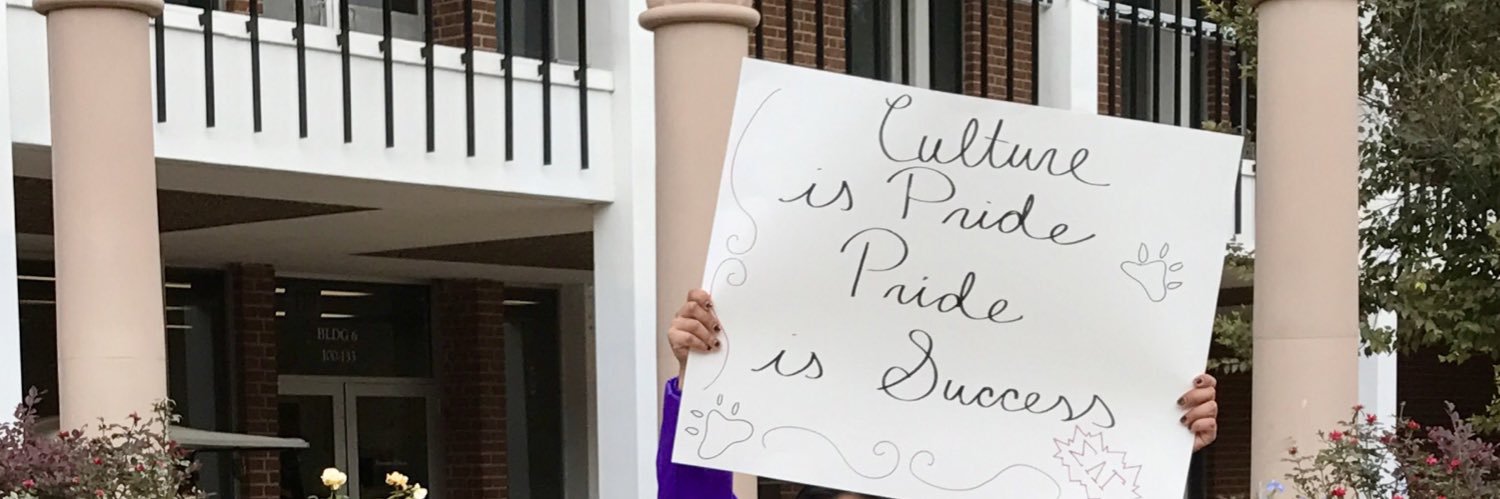 BLDG 6
100-133
Culture
is Pride
Pride
is Success